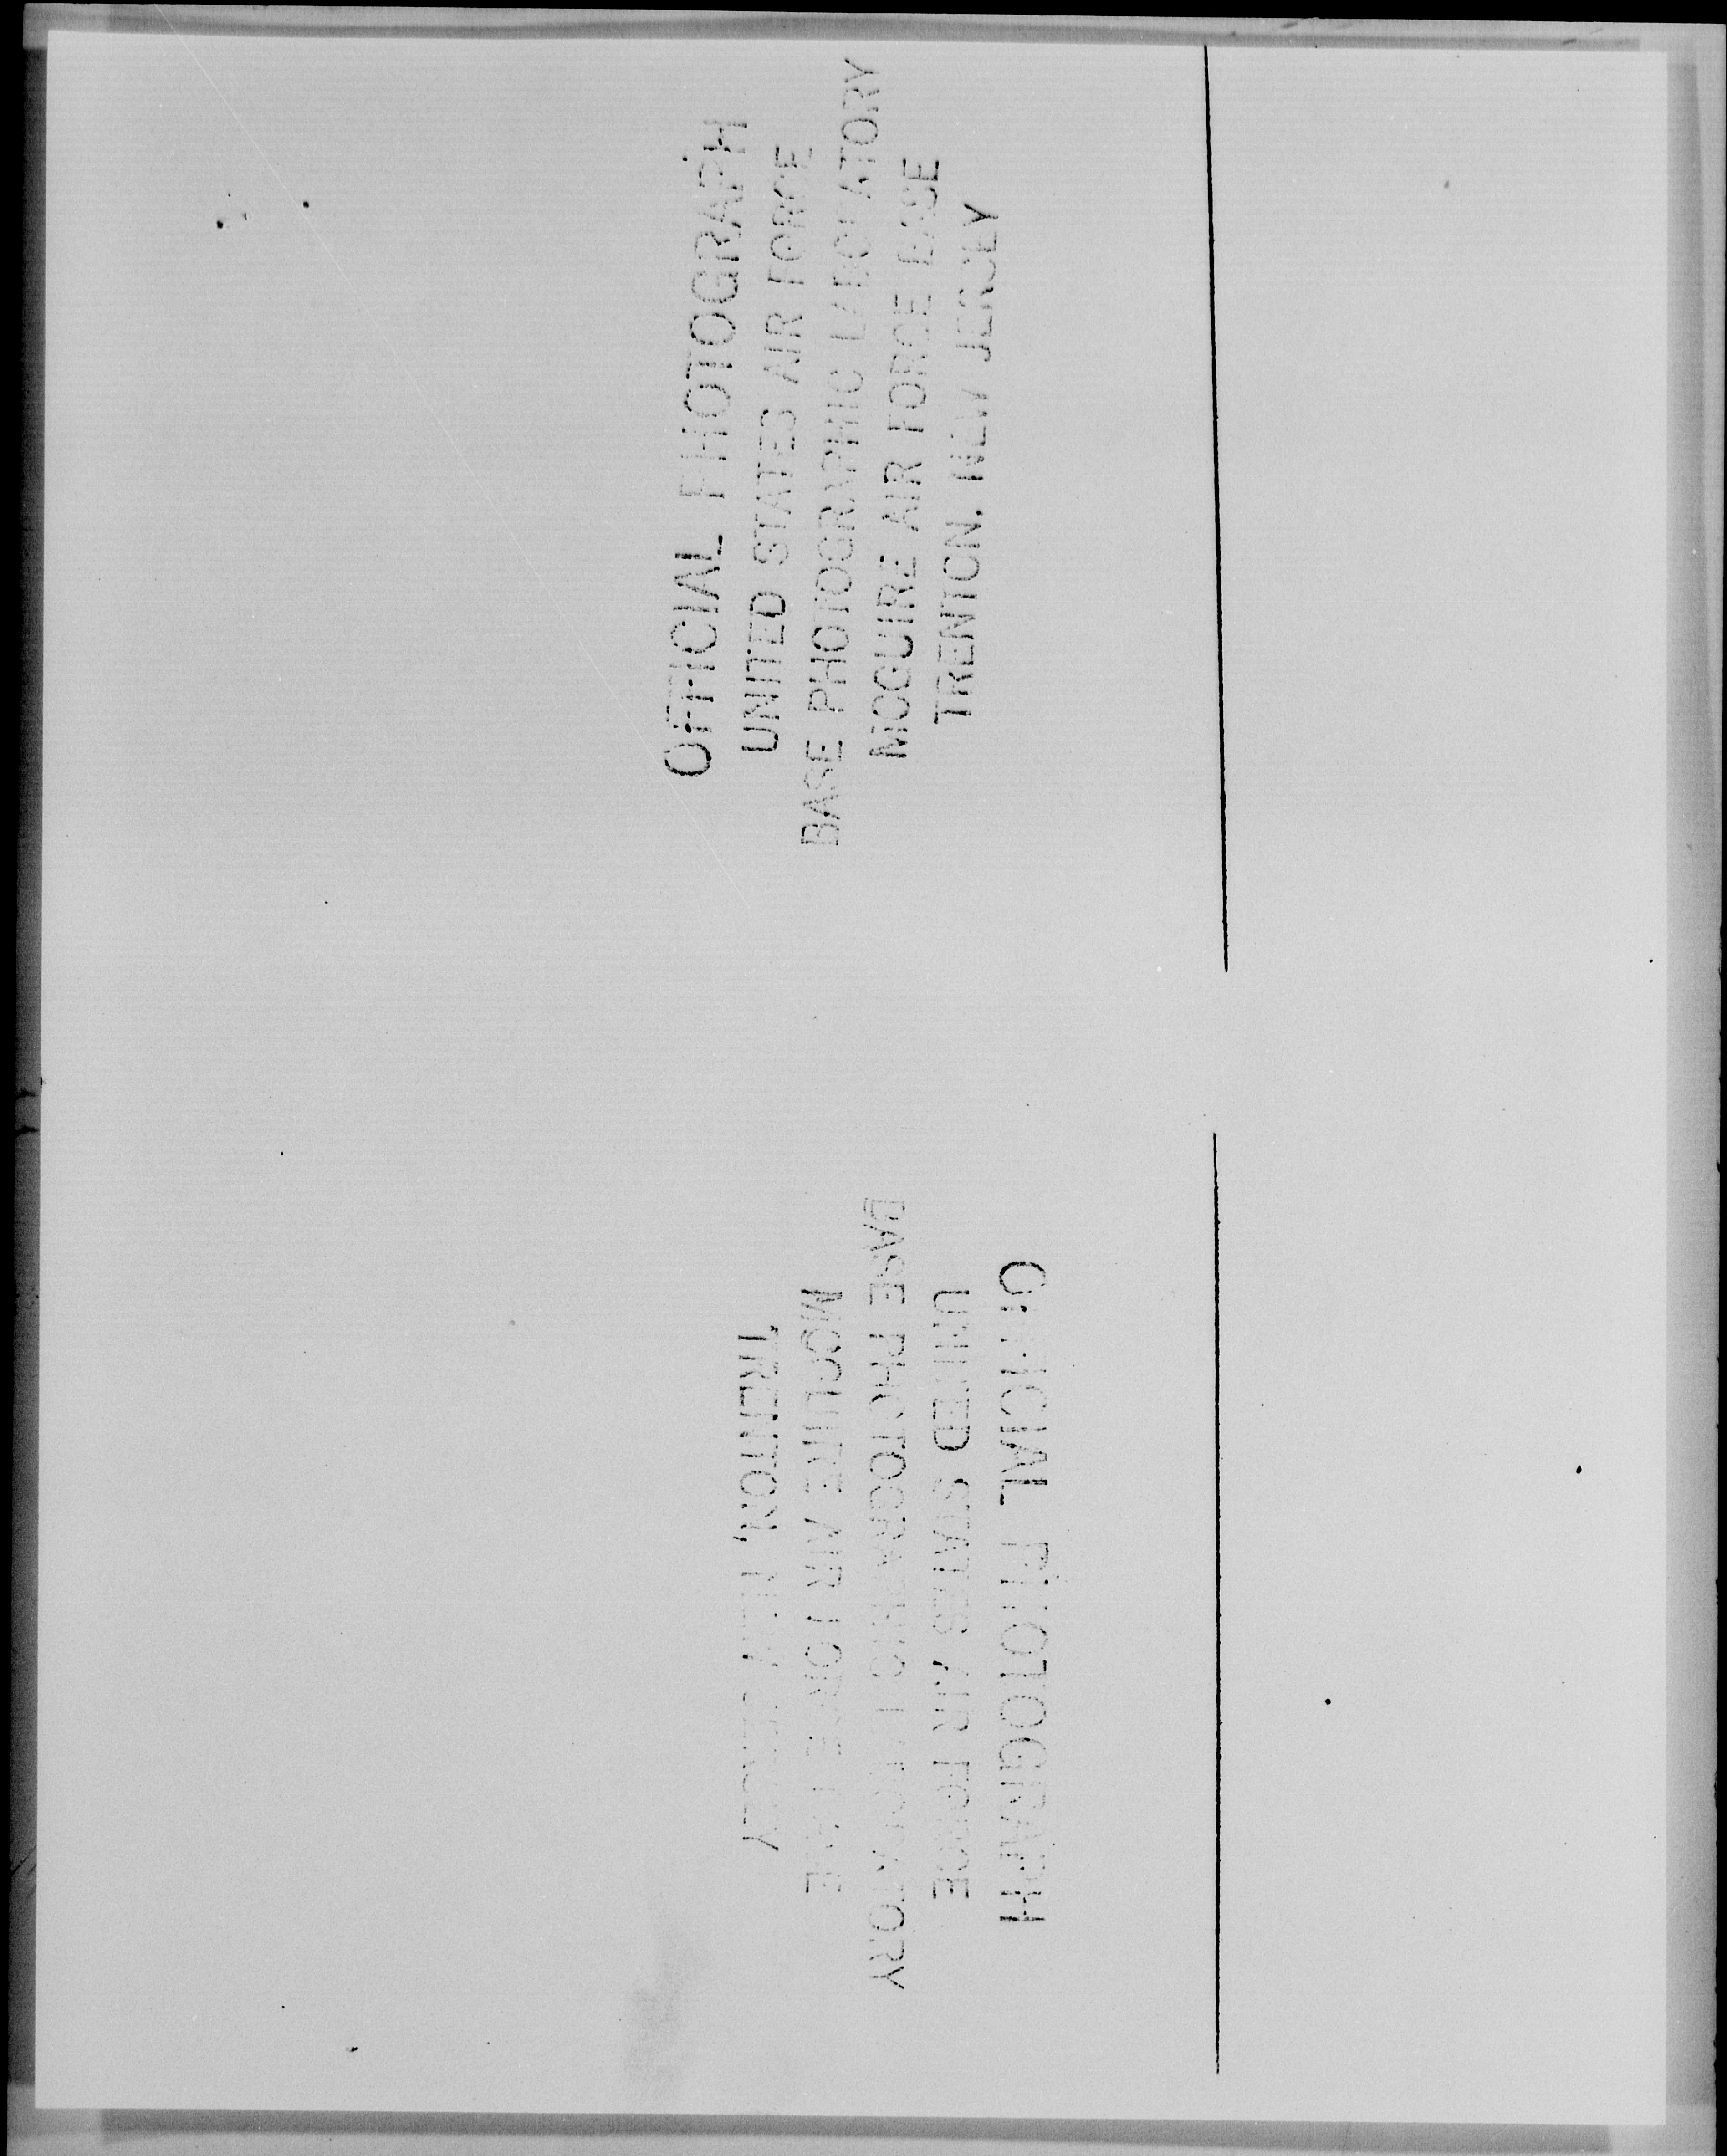 OFFICIAL PHOTOGRAPH
UNITED STATES AIR FORCE
BASE PHOTOGRAPHIC LABORATORY
MCGUIRE AIR FORCE BASE
TRENTON, NEW JERSEY
OFFICIAL PHOTOGRAPH
UNITED STATES AIR FORCE
BASE PHOTOGRAPHIC LABORATORY
MCGUIRE AIR FORCE BASE
TRENTON, NEW JERSEY